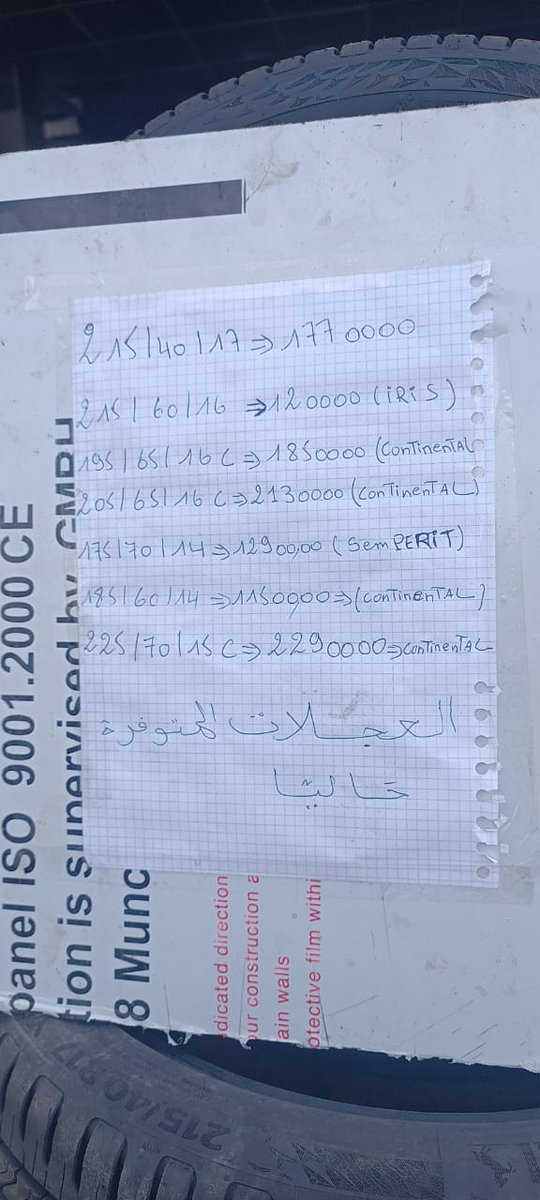 215/40/17 ⇒ 1770000
215/60/16 ⇒ 120000 (iRiS)
195/65/16 C ⇒ 1850000 (ConTinenTAL
205/65/16 C ⇒ 2130000 (ConTinenTAL)
175/70/14 ⇒ 1290000 (SemPERIT)
185/60/14 ⇒ 1150000 ⇒ (ConTinenTAL)
225/70/15 C ⇒ 2290000 ⇒ ConTinenTAL
العجلات المتوفرة
حاليا
panel ISO 9001.2000 CE
tion is supervised by GMBH
8 Munc
dicated direction
ur construction a
ain walls
otective film withi
215/40 R17